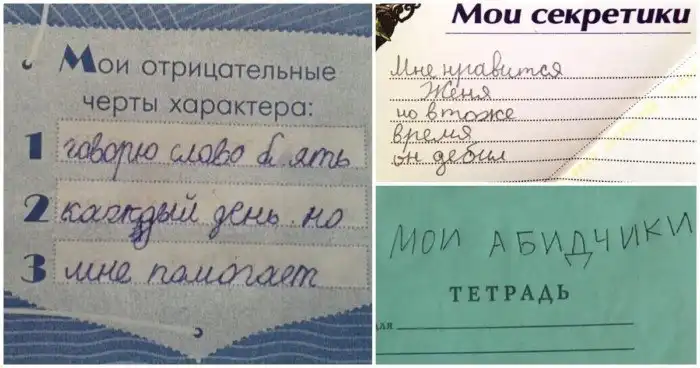 Мои отрицательные
черты характера:
1 говорю слово бл ять
2 каждый день но
3 мне помогает
Мои секретики
Мне нравится
Женя
но в тоже
время
он дебил
МОИ АБИДЧИКИ
ТЕТРАДЬ
для